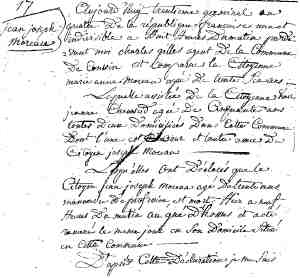 17
jean joseph
Moreau
Aujourd'huy trentieme germinal an
quatre de la république française une et
indivisible a huit heures du matin par de
vant moi charles gilles agent de la Commune
de Couvin est Comparue la Citoyenne
marie anne Moreau agée de trente
Laquelle assistée de la Citoyenne
agé de Cinquante ans
toutes deux domiciliées dans Cette Commune
dont l'une est et l'autre amie de
Citoyen joseph Moreau
Lesquelles ont déclarés que le
Citoyen jean joseph Moreau agé de
manoeuvre de profession est mort hier a neuf
heures du matin au que dessus et acte
moreau le meme jour en son domicile situé
en Cette Commune
D'après Cette Déclaration je me suis